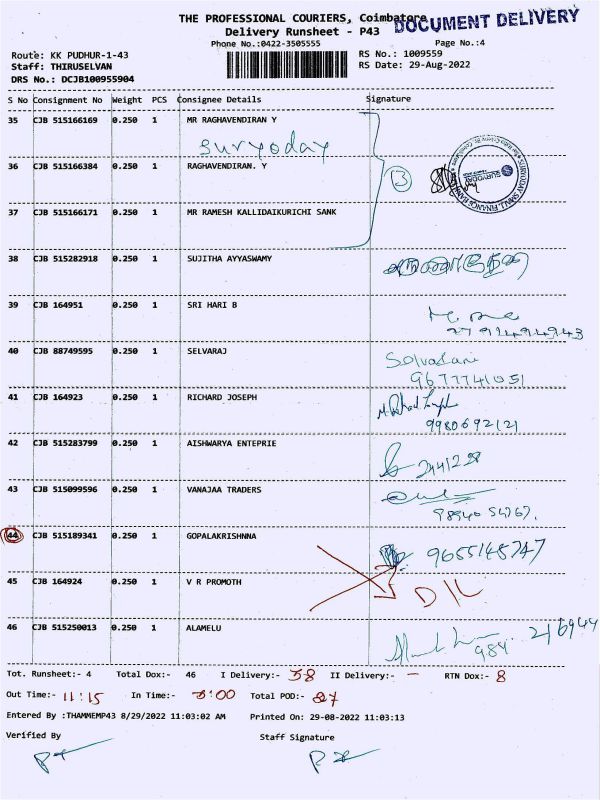 THE PROFESSIONAL COURIERS, Coimbatore
DOCUMENT DELIVERY
Delivery Runsheet - P43
Phone No.:0422-3505555
Page No.:4
Route: KK PUDHUR-1-43
RS No.: 1009559
Staff: THIRUSELVAN
RS Date: 29-Aug-2022
DRS No.: DCJB100955904
S No Consignment No Weight PCS Consignee Details Signature
35 CJB 515166169 0.250 1 MR RAGHAVENDIRAN Y
Suryoday
36 CJB 515166384 0.250 1 RAGHAVENDIRAN. Y
3
37 CJB 515166171 0.250 1 MR RAMESH KALLIDAIKURICHI SANK
38 CJB 515282918 0.250 1 SUJITHA AYYASWAMY
39 CJB 164951 0.250 1 SRI HARI B
40 CJB 88749595 0.250 1 SELVARAJ
9677741051
41 CJB 164923 0.250 1 RICHARD JOSEPH
9980692121
42 CJB 515283799 0.250 1 AISHWARYA ENTEPRIE
43 CJB 515099596 0.250 1 VANAJAA TRADERS
44 CJB 515189341 0.250 1 GOPALAKRISHNNA
9655145747
45 CJB 164924 0.250 1 V R PROMOTH
D/L
46 CJB 515250013 0.250 1 ALAMELU
984 216944
Tot. Runsheet:- 4 Total Dox:- 46 I Delivery:- 38 II Delivery:- - RTN Dox:- 8
Out Time:- 11:15 In Time:- 3:00 Total POD:- 27
Entered By :THAMMEMP43 8/29/2022 11:03:02 AM Printed On: 29-08-2022 11:03:13
Verified By Staff Signature